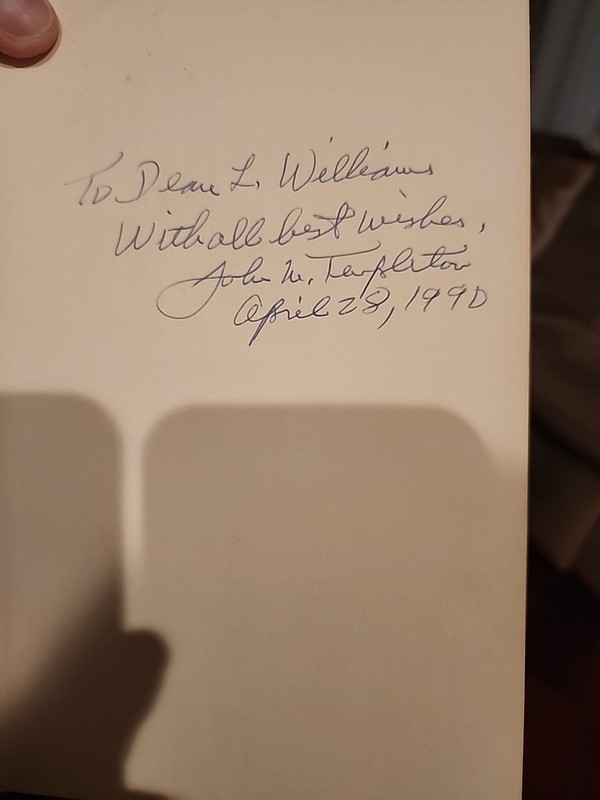 To Dean L. Williams
With all best wishes,
John M. Templeton
April 28, 1990